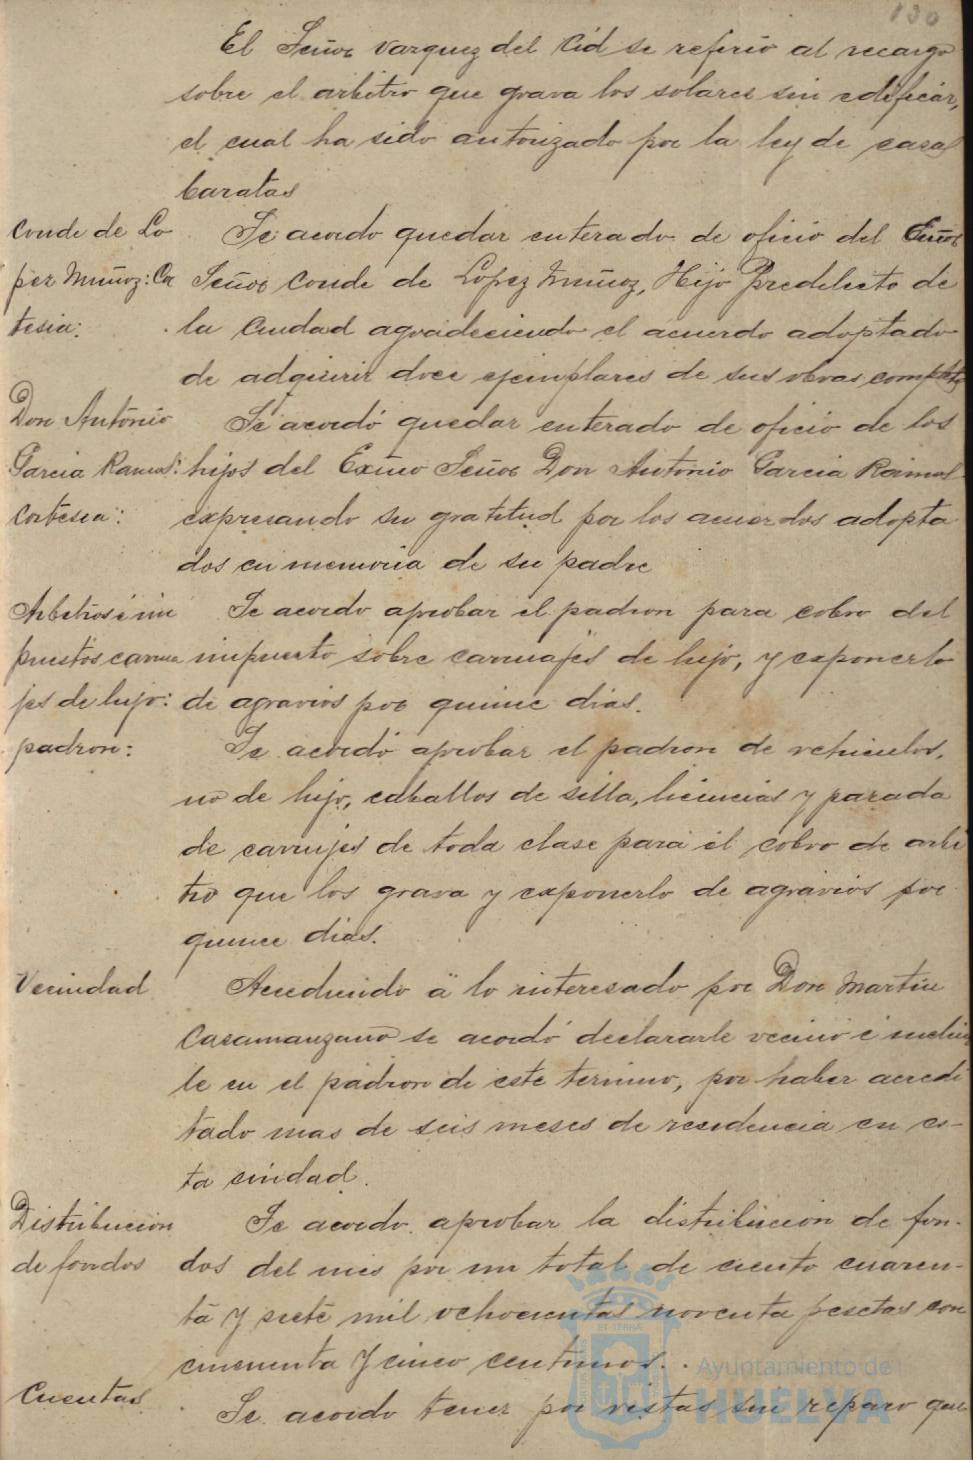 130
El Señor Vazquez del Cid se refirió al recargo
sobre el arbitro que grava los solares sin edificar,
el cual ha sido autorizado por la ley de casas
baratas
Conde de Lo
pez Muñoz: Co
tesia:
Se acordo quedar enterado de oficio del Exmo
Señor Conde de López Muñoz, Hijo Predilecto de
la Ciudad agradeciendo el acuerdo adoptado
de adquirir doce ejemplares de sus obras completas
Don Antonio
Garcia Ramos:
Cortesia:
Se acordó quedar enterado de oficio de los
hijos del Exmo Señor Don Antonio Garcia Ramos
expresando su gratitud por los acuerdos adopta
dos en memoria de su padre
Arbitrios é im
puestos carrua
jes de lujo:
padron:
Se acordo aprobar el padron para cobro del
impuesto sobre carruajes de lujo, y exponerlo
de agravios por quince dias.
Se acordó aprobar el padron de vehiculos,
no de lujo, caballos de silla, licencias y parada
de carrujes de toda clase para el cobro de arbi
trio que los grava y exponerlo de agravios por
quince dias.
Vecindad
Accediendo á lo interesado por Don Martin
Casamanzano se acordó declararle vecino é incluir
le en el padron de este termino, por haber acredi
tado mas de seis meses de residencia en es-
ta ciudad.
Distribucion
de fondos
Se acordo aprobar la distribución de fon-
dos del mes por un total de ciento cuaren-
ta y siete mil ochocientas noventa pesetas con
cincuenta y cinco centimos.
Cuentas
Se acordo tener por vistas sin reparo que
Ayuntamiento de
HUELVA